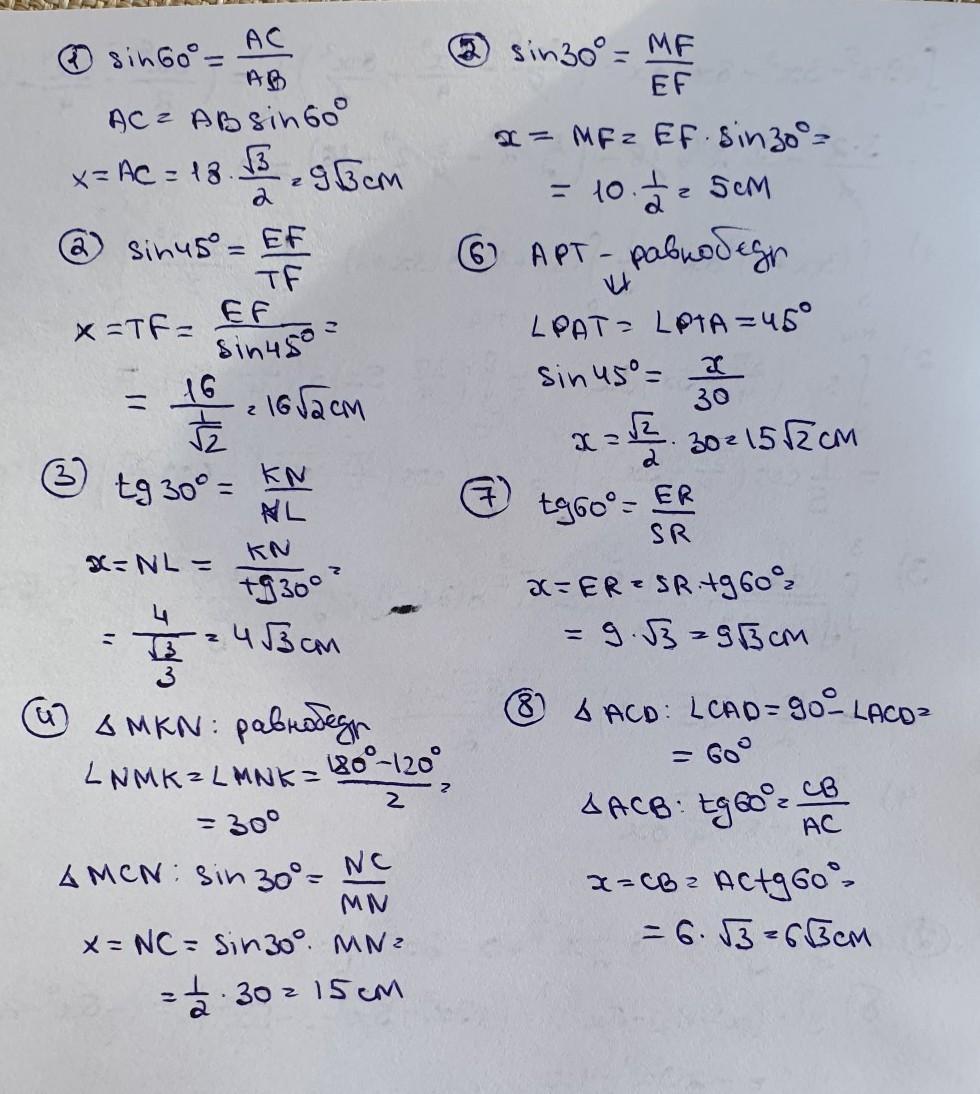 ① sin60° = AC/AB
AC = AB sin60°
x = AC = 18 · √3/2 = 9√3 см
② sin45° = EF/TF
x = TF = EF/sin45° =
= 16/(1/√2) = 16√2 см
③ tg 30° = KN/NL
x = NL = KN/tg30° =
= 4/(√3/3) = 4√3 см
④ △MKN: равнобедр
∠NMK = ∠MNK = (180° - 120°)/2 =
= 30°
△MCN: sin 30° = NC/MN
x = NC = sin30° · MN =
= 1/2 · 30 = 15 см
⑤ sin30° = MF/EF
x = MF = EF · sin30° =
= 10 · 1/2 = 5 см
⑥ APT - равнобедр
⇓
∠PAT = ∠PTA = 45°
sin45° = x/30
x = √2/2 · 30 = 15√2 см
⑦ tg60° = ER/SR
x = ER = SR · tg60° =
= 9 · √3 = 9√3 см
⑧ △ACD: ∠CAD = 90° - ∠ACD =
= 60°
△ACB: tg60° = CB/AC
x = CB = AC tg60° =
= 6 · √3 = 6√3 см